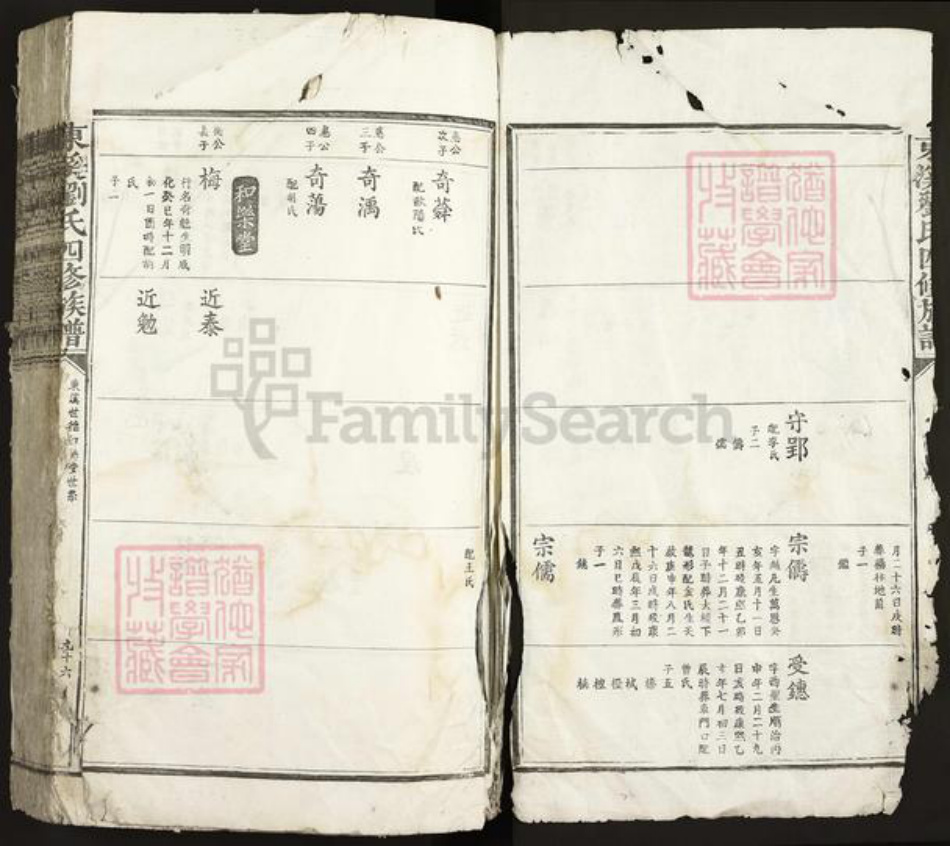 月二十六日戌時
葬楊林地菌
子一
鑑
守郢
配李氏
子二
儔
儒
宗儔
亥年五月十一日
丑時歿康熙乙卯
年十二月二十一
日子時葬大嶺下
龍形配金氏生天
啟庚申年八月二
十六日戌時歿康
熙戊辰年三月初
六日巳時葬鳳形
子一
鏸
宗儒
配王氏
受鏸
申年二月二十九
日亥時歿康熙乙
亥年七月初三日
辰時葬東門口配
曾氏
子五
東溪劉氏四修族譜
惠公
次子
惠公
三子
惠公
四子
公
長子
奇薜
配歐陽氏
奇渪
奇蕩
配胡氏
和樂堂
梅
行名奇龍生明成
化癸巳年十二月
初一日酉時配
氏
子二
近泰
近勉
東溪劉氏四修族譜
九十六
猶他家
譜學會
收藏
猶他家
譜學會
收藏
FamilySearch